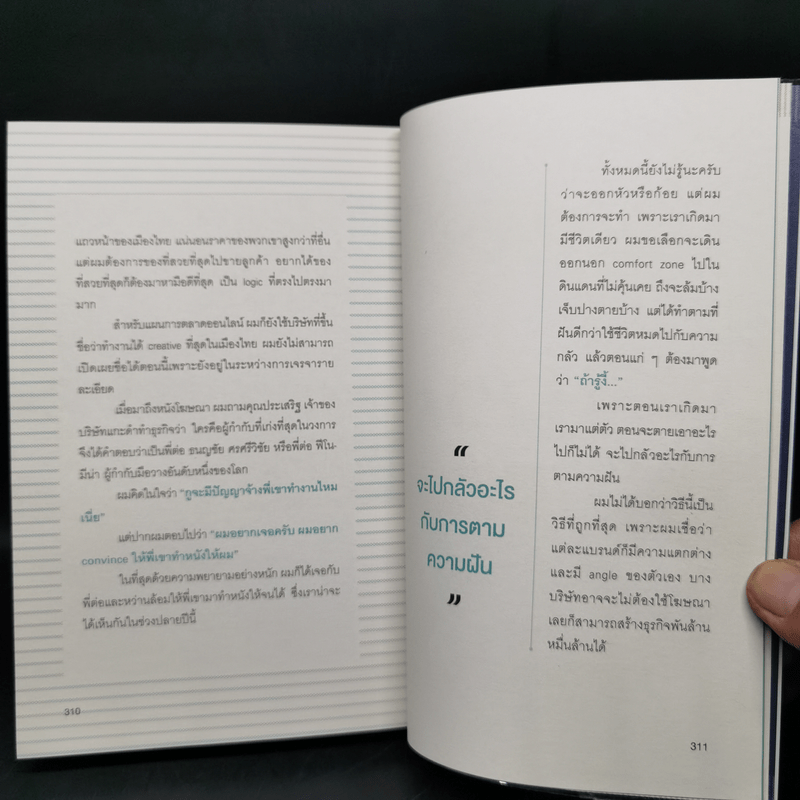 แถวหน้าของเมืองไทย แน่นอนราคาของพวกเขาสูงกว่าที่อื่น
แต่ผมต้องการของที่สวยที่สุดไปขายลูกค้า อยากได้ของ
ที่สวยที่สุดก็ต้องมาหามือดีที่สุด เป็น logic ที่ตรงไปตรงมา
มาก
สำหรับแผนการตลาดออนไลน์ ผมก็ยังใช้บริษัทที่ขึ้น
ชื่อว่าทำงานได้ creative ที่สุดในเมืองไทย ผมยังไม่สามารถ
เปิดเผยชื่อได้ตอนนี้เพราะยังอยู่ในระหว่างการเจรจาราย
ละเอียด
เมื่อมาถึงหนังโฆษณา ผมถามคุณประเสริฐ เจ้าของ
บริษัทแกะดำทำธุรกิจว่า ใครคือผู้กำกับที่เก่งที่สุดในวงการ
จึงได้คำตอบว่าเป็นพี่ต่อ ธนญชัย ศรศรีวิชัย หรือพี่ต่อ ฟีโน-
มีน่า ผู้กำกับมือวางอันดับหนึ่งของโลก
ผมคิดในใจว่า "กูจะมีปัญญาจ้างพี่เขาทำงานไหม
เนี่ย"
แต่ปากผมตอบไปว่า "ผมอยากเจอครับ ผมอยาก
convince ให้พี่เขาทำหนังให้ผม"
ในที่สุดด้วยความพยายามอย่างหนัก ผมก็ได้เจอกับ
พี่ต่อและหว่านล้อมให้พี่เขามาทำหนังให้จนได้ ซึ่งเราน่าจะ
ได้เห็นกันในช่วงปลายปีนี้
310
"
จะไปกลัวอะไร
กับการตาม
ความฝัน
"
ทั้งหมดนี้ยังไม่รู้นะครับ
ว่าจะออกหัวหรือก้อย แต่ผม
ต้องการจะทำ เพราะเราเกิดมา
มีชีวิตเดียว ผมขอเลือกจะเดิน
ออกนอก comfort zone ไปใน
ดินแดนที่ไม่คุ้นเคย ถึงจะล้มบ้าง
เจ็บปางตายบ้าง แต่ได้ทำตามที่
ฝันดีกว่าใช้ชีวิตหมดไปกับความ
กลัว แล้วตอนแก่ ๆ ต้องมาพูด
ว่า "ถ้ารู้งี้..."
เพราะตอนเราเกิดมา
เรามาแต่ตัว ตอนจะตายเอาอะไร
ไปก็ไม่ได้ จะไปกลัวอะไรกับการ
ตามความฝัน
ผมไม่ได้บอกว่าวิธีนี้เป็น
วิธีที่ถูกที่สุด เพราะผมเชื่อว่า
แต่ละแบรนด์ก็มีความแตกต่าง
และมี angle ของตัวเอง บาง
บริษัทอาจจะไม่ต้องใช้โฆษณา
เลยก็สามารถสร้างธุรกิจพันล้าน
หมื่นล้านได้
311